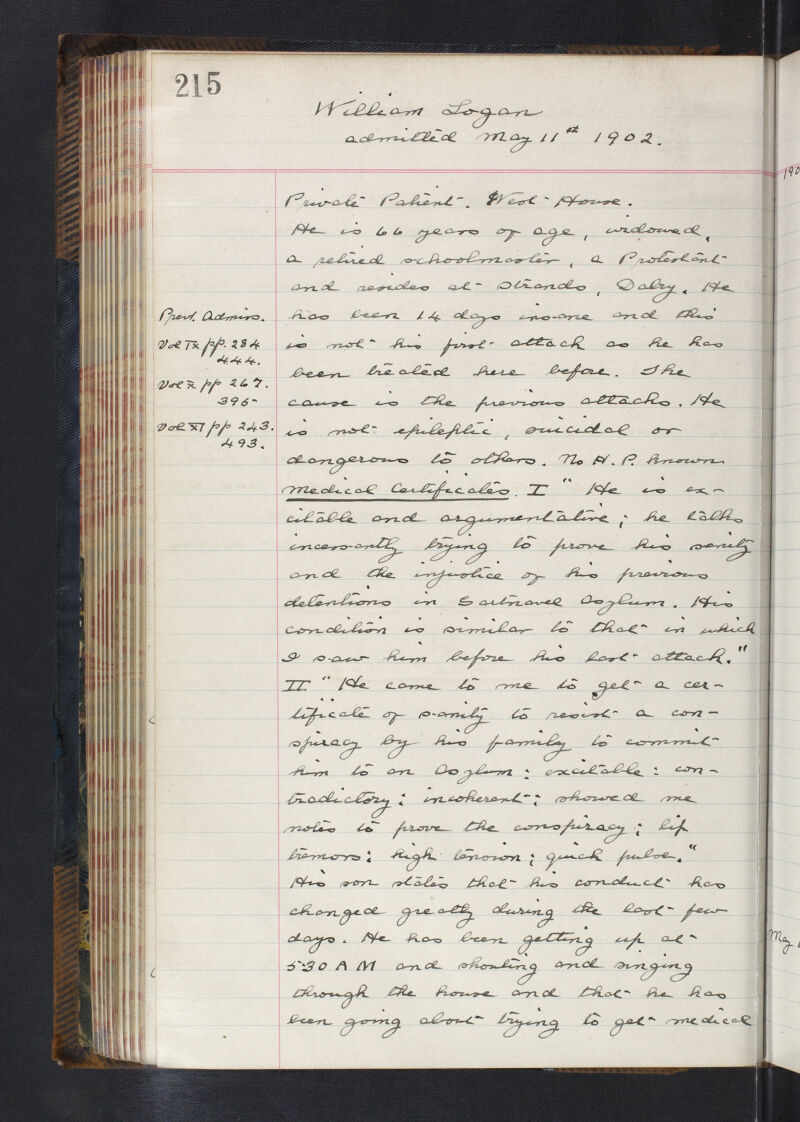 215
William Logan
admitted May 11th 1902.
Private Patient. West House.
He is 66 years of age, widowed,
a retired schoolmaster, a Protestant
and resides at Strands, Dalry. He
Prevt. Admins.
has been 14 days insane and this
Vol IX pp. 284
444.
is not his first attack as he has
been treated here before. The
Vol X pp 267.
395
cause is the previous attacks. He
Vol XI pp 243.
493.
is not epileptic, suicidal or
dangerous to others. No H. P. known
Medical Certificates. I " He is ex-
citable and argumentative; he talks
incessantly trying to prove his sanity
and the injustice of his previous
detentions in Gartnavel Asylum. His
condition is similar to that in which
I saw him before his last attack."
II " He came to me to get a cer-
tificate of sanity to resist a con-
spiracy by his family to commit
him to an Asylum: excitable: con-
tradictory: incoherent: showed me
notes to prove the conspiracy; lip
tremors: high tension; quick pulse."
His son states that his conduct has
changed greatly during the last few
days. He has been getting up at
5:30 A M and shouting and singing
through the house and that he has
been going about trying to get medical
190
May